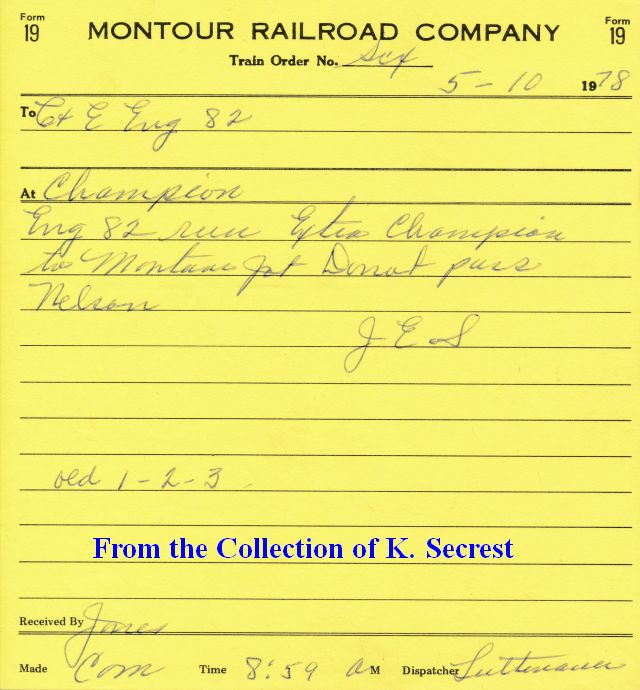 Form
19
MONTOUR RAILROAD COMPANY
Form
19
Train Order No. Six
5-10 1978
To C&E Eng 82
At Champion
Eng 82 run Extra Champion
to Montour Jct Donot pass
Nelson
J E S
old 1-2-3
From the Collection of K. Secrest
Received By Jones
Made Com Time 8:59 AM Dispatcher